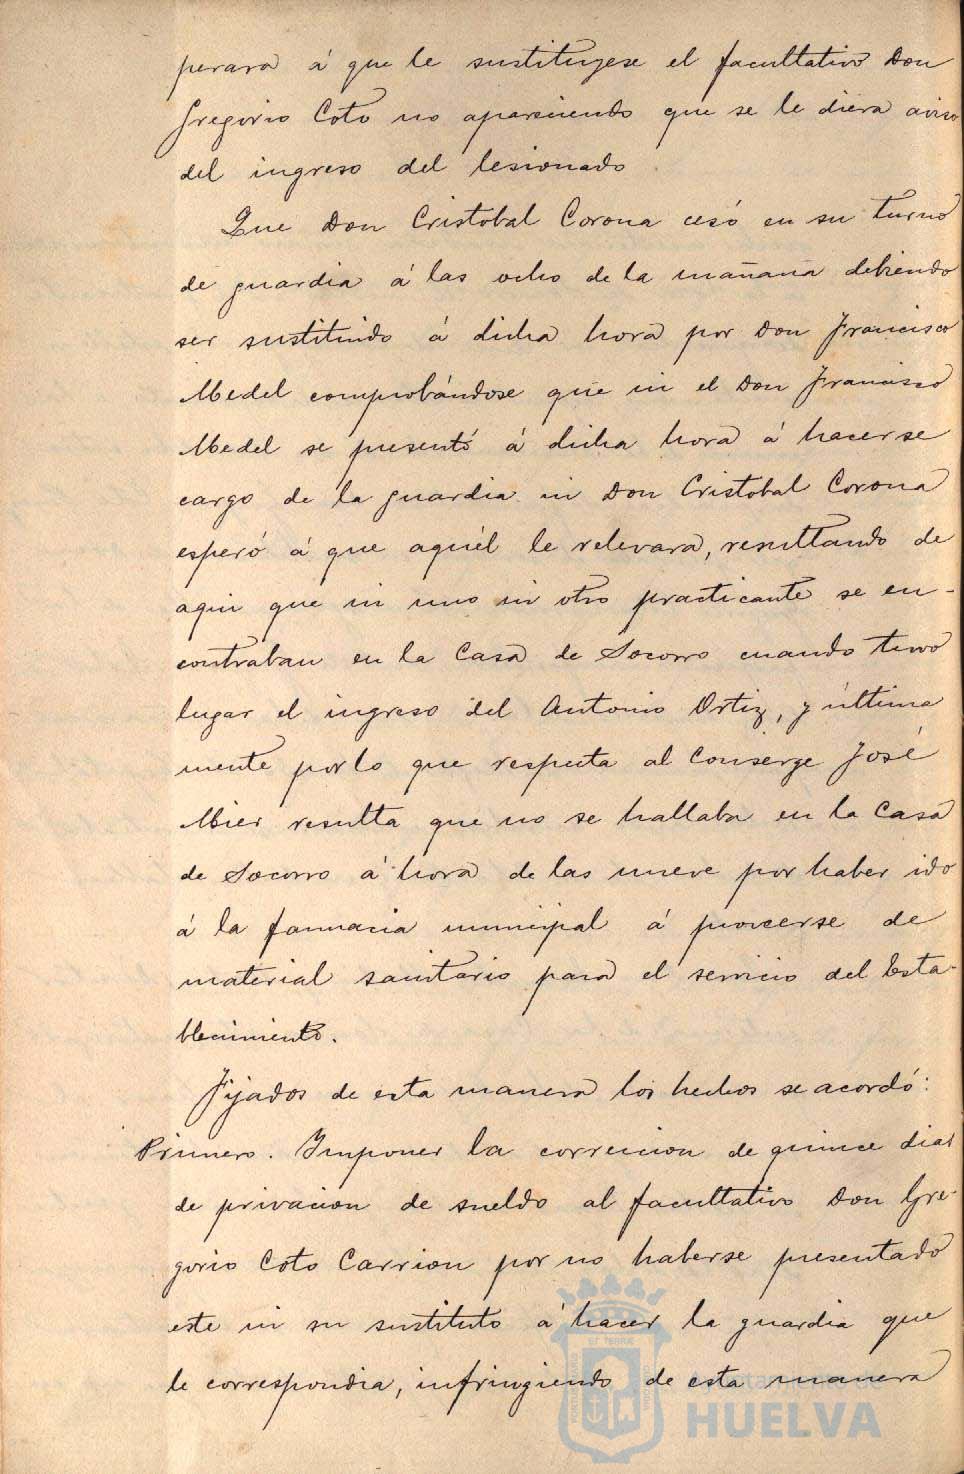 perara á que le sustituyese el facultativo Don
Gregorio Coto no apareciendo que se le diera aviso
del ingreso del lesionado
Que Don Cristobal Corona cesó en su turno
de guardia á las ocho de la mañana debiendo
ser sustituido á dicha hora por Don Francisco
Medel comprobándose que ni el Don Francisco
Medel se presentó á dicha hora á hacerse
cargo de la guardia ni Don Cristobal Corona
esperó á que aquél le relevara, resultando de
aqui que ni uno ni otro practicante se en-
contraban en la Casa de Socorro cuando tuvo
lugar el ingreso del Antonio Ortiz, y última
mente por lo que respecta al Conserge José
Mier resulta que no se hallaba en la Casa
de Socorro á hora de las nueve por haber ido
á la farmacia municipal á proveerse de
material sanitario para el servicio del Esta-
blecimiento.
Fijados de esta manera los hechos se acordó:
Primero. Imponer la correccion de quince dias
de privacion de sueldo al facultativo Don Gre-
gorio Coto Carrion por no haberse presentado
este ni su sustituto á hacer la guardia que
le correspondia, infringiendo de esta manera
Ayuntamiento de
HUELVA